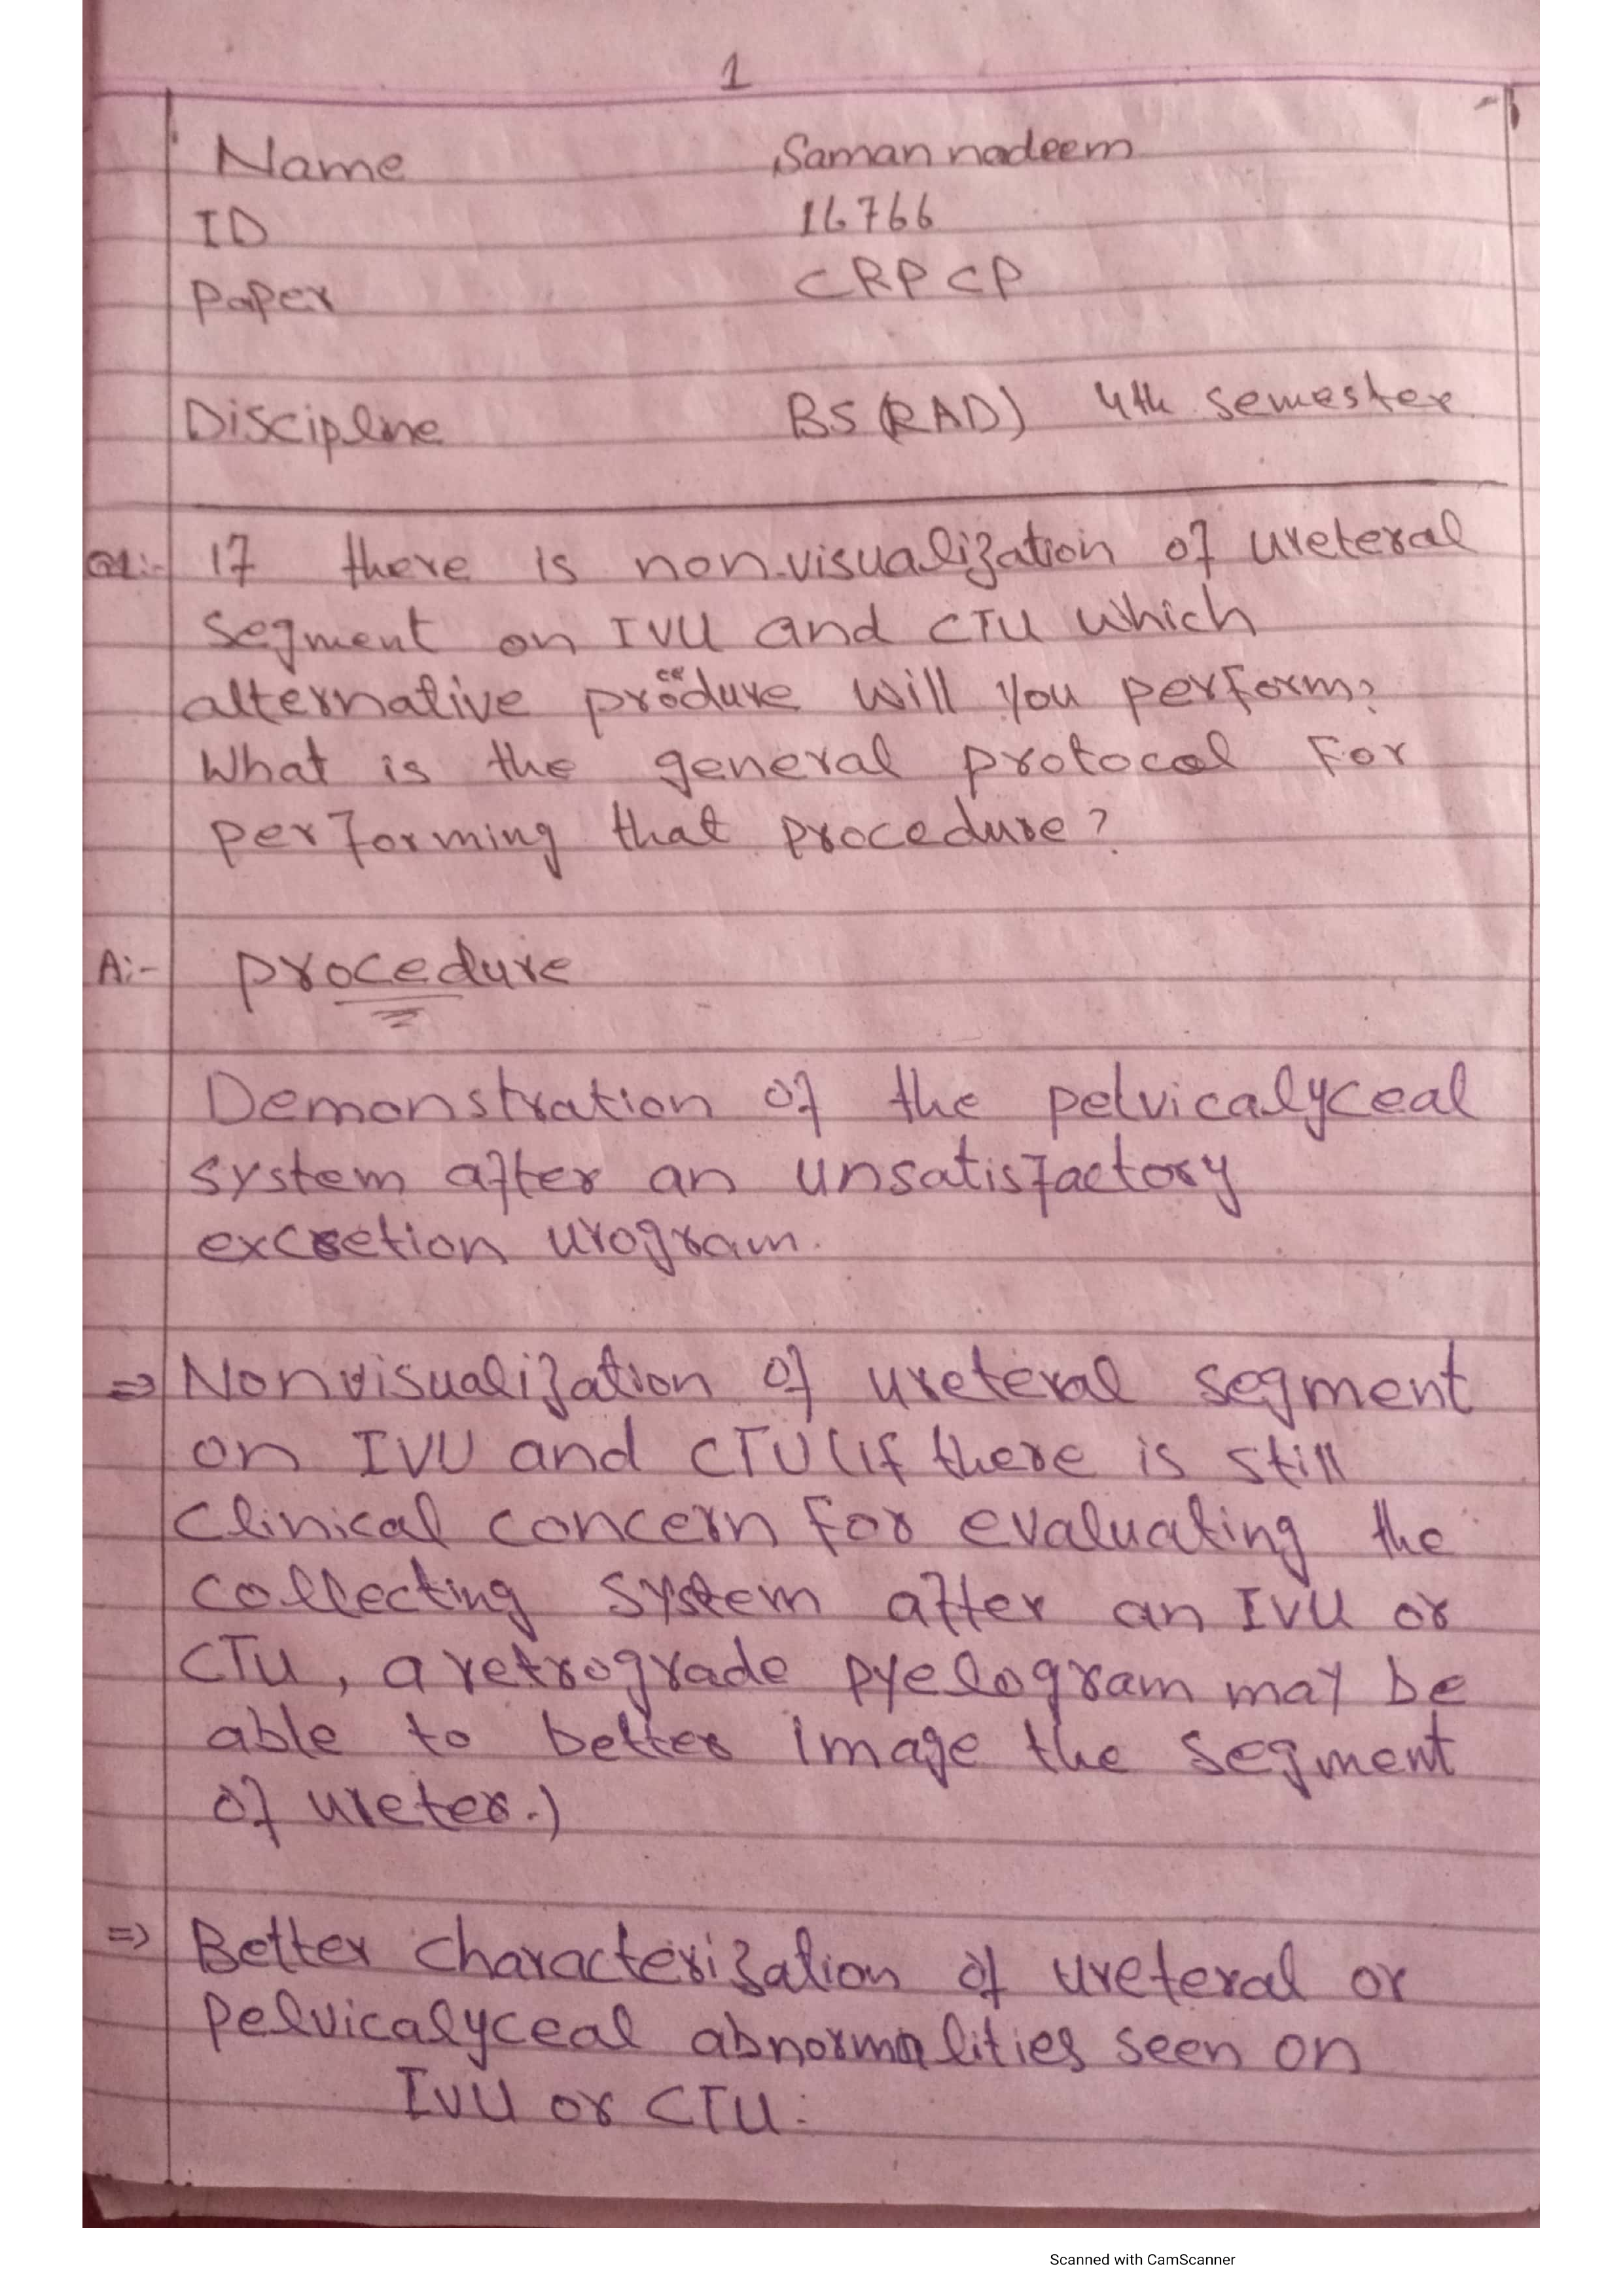 1
Name Saman nadeem
ID 16766
Paper CRPCP
Discipline BS(RAD) 4th semester
Q1:- If there is non-visualization of ureteral
segment on IVU and CTU which
alternative procedure will you perform?
What is the general protocol For
performing that procedure?
A:- procedure
Demonstration of the pelvicalyceal
system after an unsatisfactory
excretion urogram.
⇒ Nonvisualization of ureteral segment
on IVU and CTU (if there is still
clinical concern for evaluating the
collecting system after an IVU or
CTU, a retrograde pyelogram may be
able to better image the segment
of ureter.)
⇒ Better characterization of ureteral or
pelvicalyceal abnormalities seen on
IVU or CTU.
Scanned with CamScanner